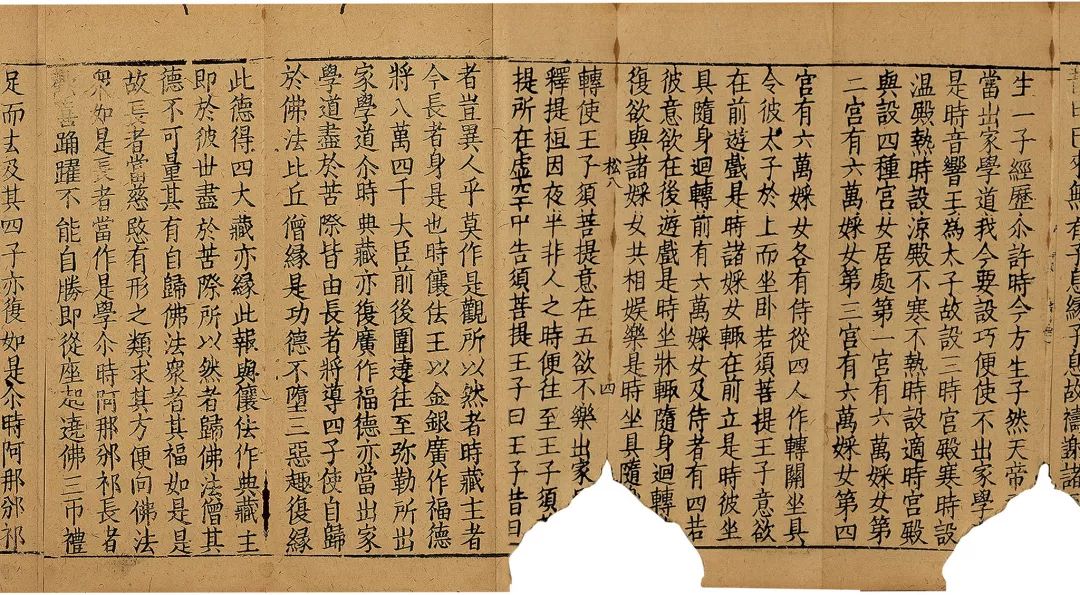 昔日已來無有子息緣子息故禱謝諸
生一子經歷尒許時今方生子然天帝
當出家學道我今要設巧便使不出家學
是時音響王為太子故設三時宮殿寒時設
溫殿熱時設涼殿不寒不熱時設適時宮殿
與設四種宮女居處第一宮有六萬婇女第
二宮有六萬婇女第三宮有六萬婇女第四
宮有六萬婇女各有侍從四人作轉關坐具
令彼太子於上而坐卧若須菩提王子意欲
在前遊戲是時諸婇女輒在前立是時彼坐
具隨身迴轉前有六萬婇女及侍者有四若
彼意欲在後遊戲是時坐牀輒隨身迴轉
復欲與諸婇女共相娛樂是時坐具隨
松八 四
轉使王子須菩提意在五欲不樂出家
釋提桓因夜半非人之時便往至王子須
提所在虛空中告須菩提王子曰王子昔曰
者豈異人乎莫作是觀所以然者時藏主者
今長者身是也時儴佉王以金銀廣作福德
將八萬四千大臣前後圍遶往至弥勒所出
家學道尒時典藏亦復廣作福德亦當出家
學道盡於苦際皆由長者將導四子使自歸
於佛法比丘僧緣是功德不墮三惡趣復緣
此德得四大藏亦緣此報與儴佉作典藏主
即於彼世盡於苦際所以然者歸佛法僧其
德不可量其有自歸佛法衆者其福如是是
故長者當慈愍有形之類求其方便向佛法
衆如是長者當作是學尒時阿那邠祁長者
歡喜踊躍不能自勝即從座起遶佛三帀禮
足而去及其四子亦復如是尒時阿那邠祁